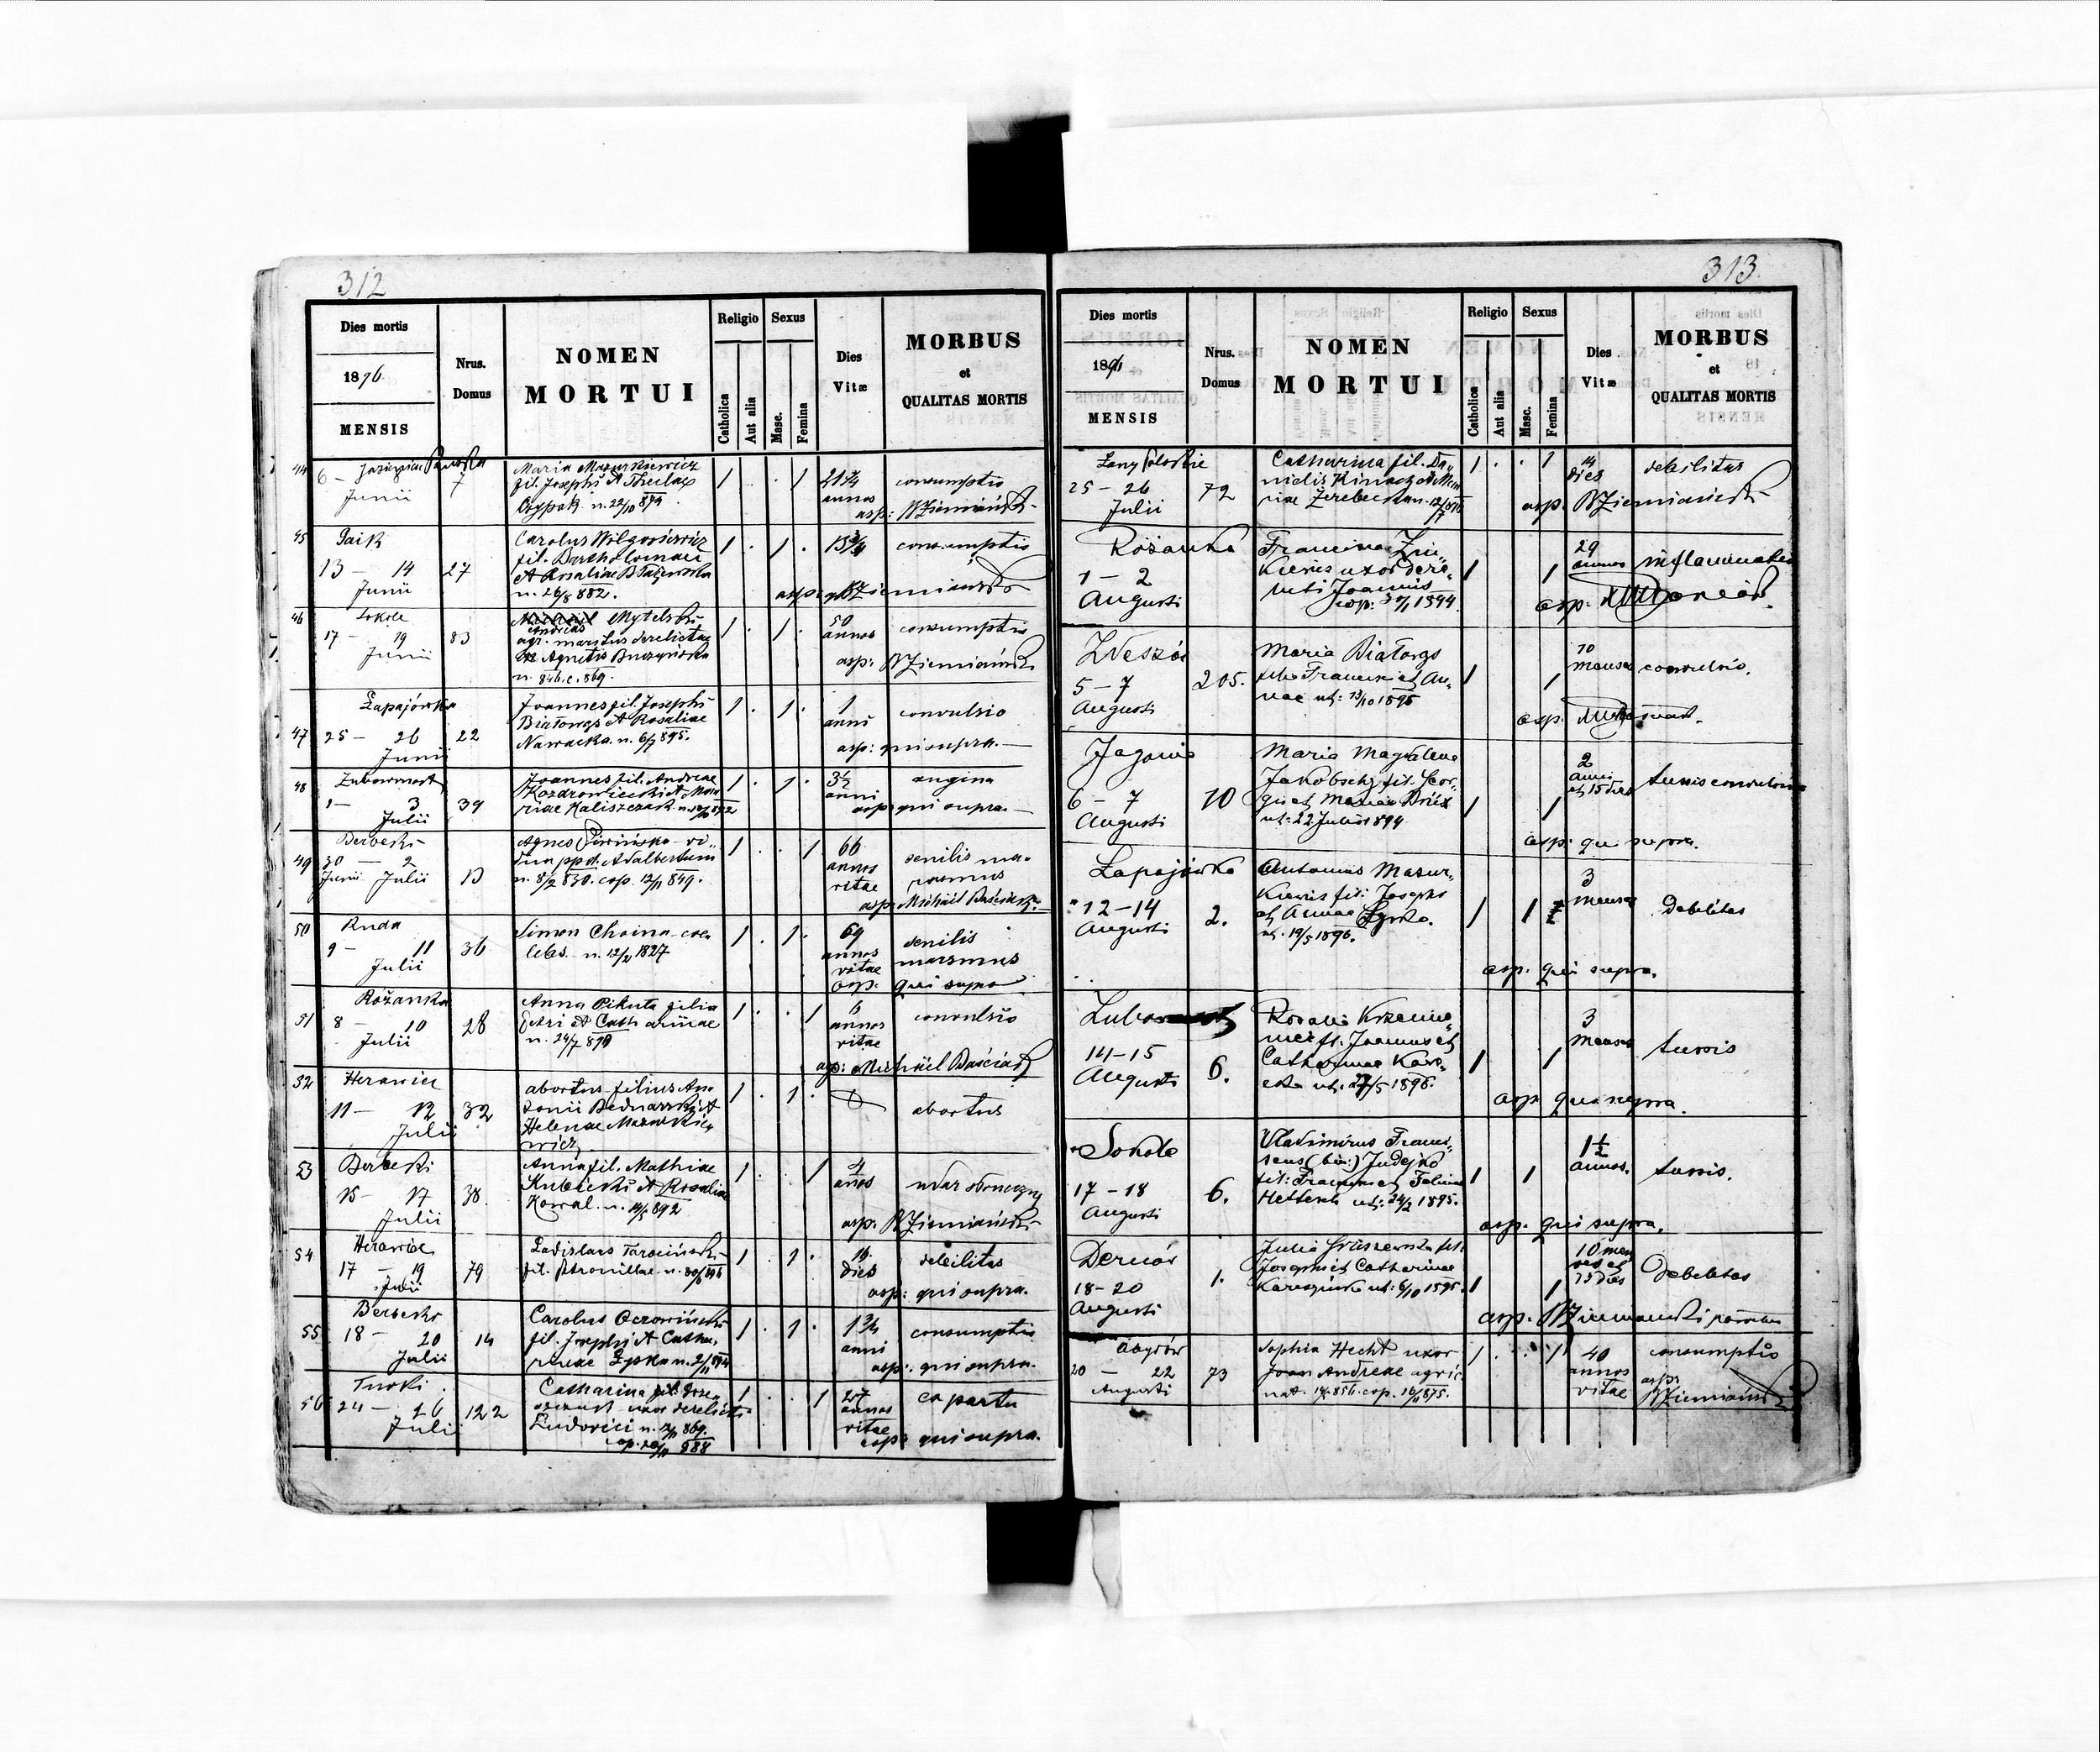 312
Dies mortis
1896.
MENSIS
Nrus.
Domus
NOMEN
MORTUI
Religio
Catholica
Aut alia
Sexus
Masc.
Femina
Dies
Vitæ
MORBUS
et
QUALITAS MORTIS
44
6 –
Junii
7
Maria Mazurkiewicz
fil. Josephi et Theclae
n. 22/10 894
1 . . 1
21 3/4
annos
consumptio
asp: WZiemiański
45
Paik
13 – 14
Junii
27
Carolus Wilgosiewicz
fil. Bartholomaei
et Rosaliae Błażewska
n. 26/8 882.
1 . 1 .
13 3/4
consumptio
asp: WZiemiański
46
Sokole
17 – 19
Junii
83
Mytelski
Andreas
agr. maritus derelictae
Agnetis Buczyńska
n. 846. c. 869.
1 . 1 .
50
annos
consumptio
asp: WZiemiański
47
Łapajówka
25 – 26
Junii
22
Joannes fil. Josephi
Białowąs et Rosaliae
Nawacka. n. 6/7 895.
1 . 1 .
1
anni
convulsio
asp: qui supra.
48
Lubowmost
1 – 3
Julii
39
Joannes fil. Andreae
Kozdrowiecki et Ma
riae Kaliszczak
1 . 1 .
3 1/2
anni
angina
asp: qui supra.
49
Berbeki
30 – 2
Junii Julii
13
Agnes Piwińska vi„
dua pp d. Adalbertum
n. 8/2 830. cop. 12/11 849.
1 . . 1
66
annos
vitae
senilis ma„
rasmus
asp: Michael Baściak
50
Ruda
9 – 11
Julii
36
Simon Choina coe„
lebs. n. 12/2 1827
1 . 1 .
69
annos
vitae
senilis
marasmus
asp: qui supra
51
Rożanka
8 – 10
Julii
28
Anna Pikuta filia
Petri et Catharinae
n. 24/7 890
1 . . 1
6
annos
vitae
convulsio
asp: Michael Baściak
52
Herawiec
11 – 12
Julii
32
abortus filius An„
tonii Bednarski et
Helenae Mazurkie„
wicz
1 . 1 .
abortus
53
Berbeki
15 – 17
Julii
38.
Anna fil. Mathiae
Kubiecki et Rosaliae
Kowal. n. 14/5 892
1 . . 1
4
anos
udar słoneczny
asp. WZiemiański
54
Herawiec
17 – 19
Julii
79
Ladislaus Tarociński
fil. Petronillae n. 30/6 896
1 . 1 .
16.
dies
debilitas
asp: qui supra.
55
Berbeki
18 – 20
Julii
14
Carolus Oczowiński
fil. Josephi et Catha„
rinae Łyska
1 . 1 .
1 3/4
anni
consumptio
asp: qui supra.
56
Turki
24 – 26
Julii
122
Catharina
uxor derelicti
Ludovici n. 869.
cop. 888
1 . . 1
27
annos
vitae
ex partu
asp: qui supra.
313.
Dies mortis
1896
MENSIS
Nrus.
Domus
NOMEN
MORTUI
Religio
Catholica
Aut alia
Sexus
Masc.
Femina
Dies
Vitæ
MORBUS
et
QUALITAS MORTIS
Łany Polskie
25 – 26
Julii
72
Catharina fil. Da„
nielis Kinach et Ma
riae Zerebecka
1 . . 1
14
dies
debilitas
asp. WZiemiański
Rożanka
1 – 2
Augusti
Francisca
uxor dere„
licti Joannis
cop: 1894.
1 1
29
annos
inflammatio
asp.
5 – 7
Augusti
205.
Maria Białowąs
filia Francisci et An„
nae nt: 13/10 1895
1 1
10
menses
convulsio.
asp.
Jagonia
6 – 7
Augusti
10
Maria Magdalena
Jakobsche fil. Geor„
gii et Mariae
nt: 22 Julii 1894
1 1
2
anni
et 15 dies
tussis convulsiva
asp: qui supra.
Łapajówka
12 – 14
Augusti
2.
Antonius Mazur„
kiewicz fil: Josephi
et Annae Łyska.
nt. 19/5 1896.
1 1
3
menses
Debilitas
asp. qui supra.
14 – 15
Augusti
6.
Rosalia
fil. Joannis et
Catharinae
nt. 27/5 1896.
1 1
3
menses
tussis
asp qui supra.
Sokole
17 – 18
Augusti
6.
Vladimirus Franci„
scus (bin.) Judejko
fil: Francisci et Felicia
nt: 24/2 1895.
1 1
1 1/2
annos.
tussis.
asp. qui supra.
Dernów
18 – 20
Augusti
1.
Julia Gruszewska fil.
Josephi et Catharinae
nt: 6/10 1895.
1 1
10 men
ses et
13 dies
Debilitas
asp. WZiemianski parochus
20 – 22
Augusti
73
Sophia Hecht uxor
Andreae agric.
nat. 856. cop. 875.
1 . . 1
40
annos
vitae
consumptio
asp.
WZiemiański